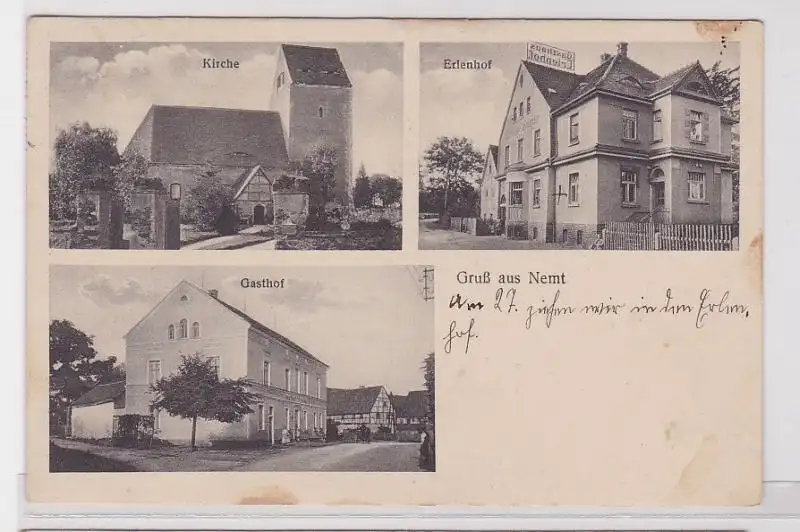 Kirche
Erlenhof
Gasthof
Gruß aus Nemt
Am 27. ziehen wir in den Erlen-
hof.